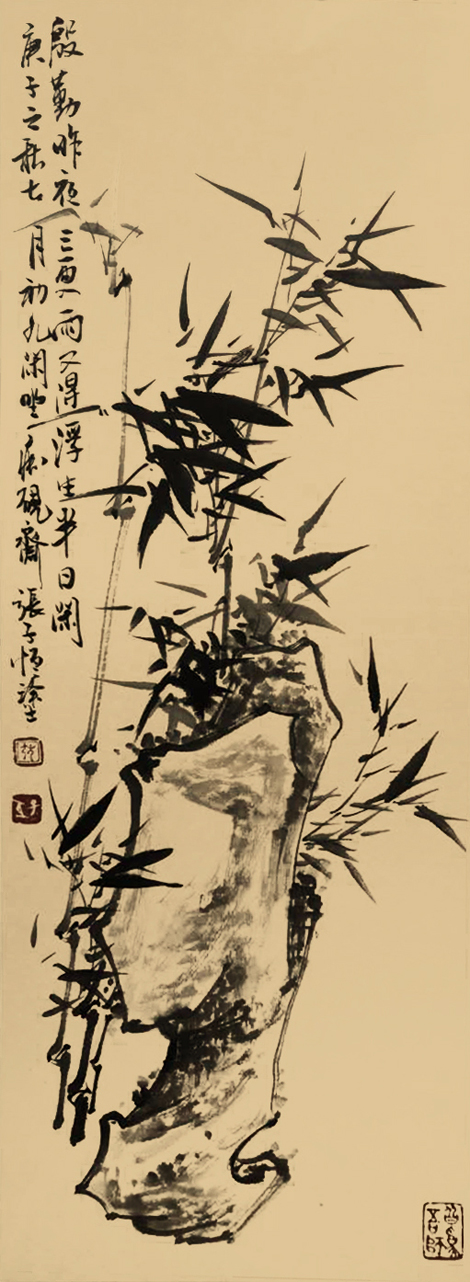 殷勤昨夜三更雨又得浮生半日閑
庚子之秋七月初九閑坐硯齋張子恒塗